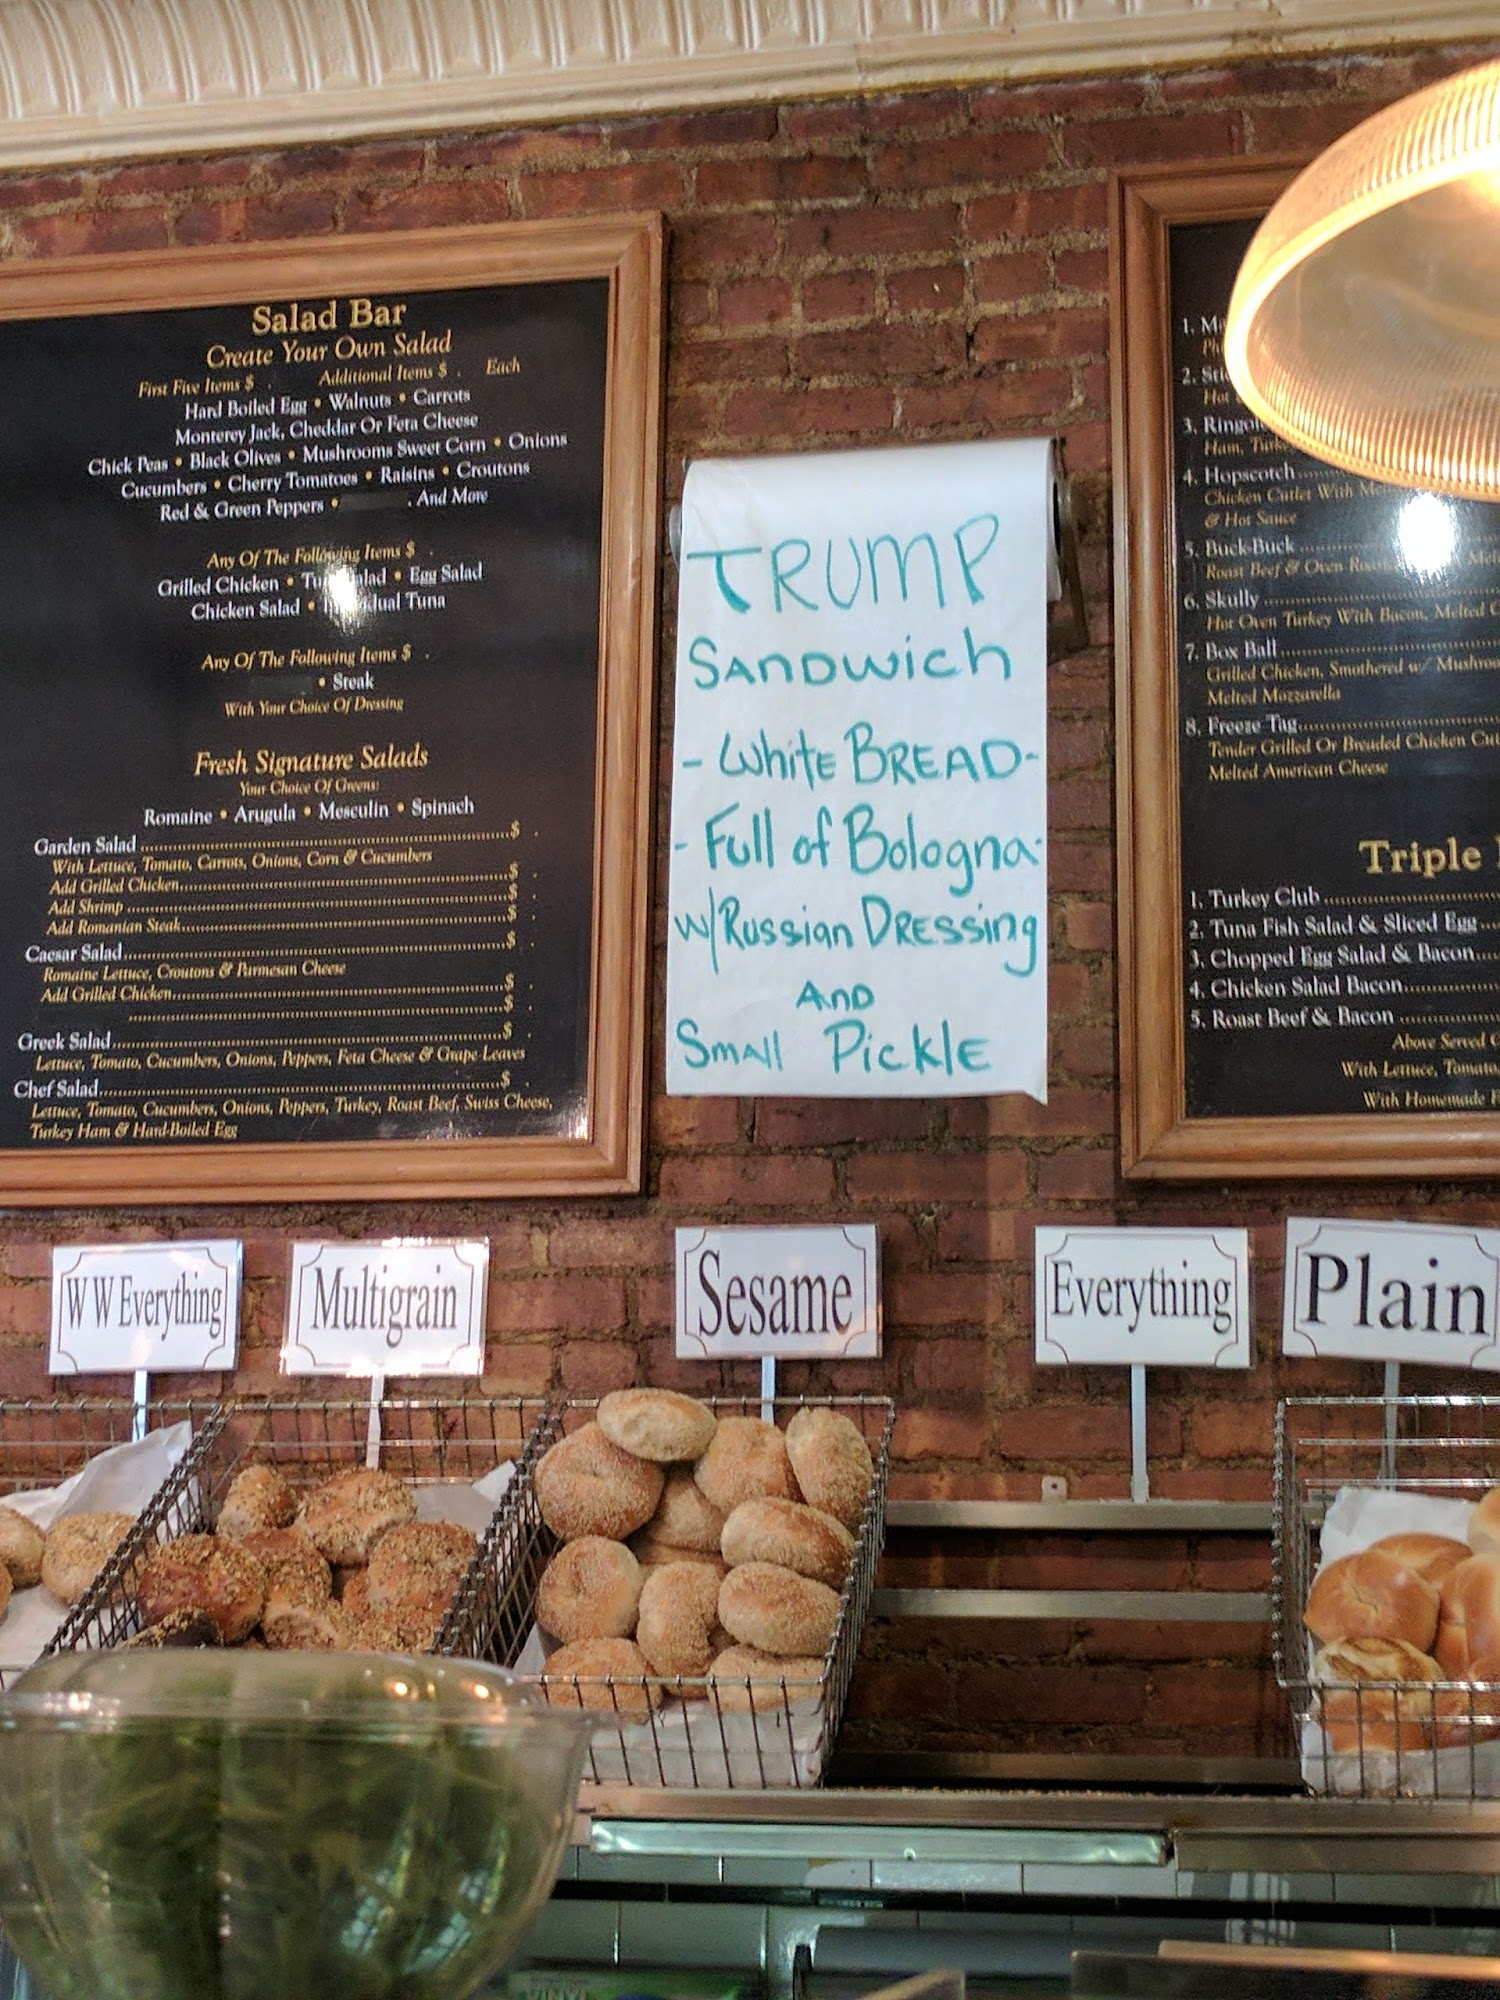 Salad Bar
Create Your Own Salad
First Five Items $ . Additional Items $ . Each
Hard Boiled Egg • Walnuts • Carrots
Monterey Jack, Cheddar Or Feta Cheese
Chick Peas • Black Olives • Mushrooms Sweet Corn • Onions
Cucumbers • Cherry Tomatoes • Raisins • Croutons
Red & Green Peppers • . And More
Any Of The Following Items $ .
Grilled Chicken • Salad • Egg Salad
Chicken Salad • Tuna
Any Of The Following Items $ .
• Steak
With Your Choice Of Dressing
Fresh Signature Salads
Your Choice Of Greens:
Romaine • Arugula • Mesculin • Spinach
Garden Salad ........ $ .
With Lettuce, Tomato, Carrots, Onions, Corn & Cucumbers
Add Grilled Chicken........ $ .
Add Shrimp ........ $ .
Add Romanian Steak........ $ .
Caesar Salad........ $ .
Romaine Lettuce, Croutons & Parmesan Cheese
Add Grilled Chicken........ $ .
........ $ .
Greek Salad........ $ .
Lettuce, Tomato, Cucumbers, Onions, Peppers, Feta Cheese & Grape Leaves
Chef Salad........ $ .
Lettuce, Tomato, Cucumbers, Onions, Peppers, Turkey, Roast Beef, Swiss Cheese,
Turkey Ham & Hard-Boiled Egg
TRUMP
SANDWich
- White BREAD -
- Full of Bologna -
w/Russian DRESSing
AND
SMAll PickLE
1.
2.
Hot
3.
Ham,
4. Hopscotch ........
Chicken Cutlet With
& Hot Sauce
5. Buck-Buck ........
Roast Beef & Oven
6. Skully ........
Hot Oven Turkey With Bacon, Melted
7. Box Ball ........
Grilled Chicken, Smothered w/
Melted Mozzarella
8. Freeze Tag ........
Tender Grilled Or Breaded Chicken
Melted American Cheese
Triple
1. Turkey Club ........
2. Tuna Fish Salad & Sliced Egg ........
3. Chopped Egg Salad & Bacon ........
4. Chicken Salad Bacon ........
5. Roast Beef & Bacon ........
Above Served
With Lettuce, Tomato,
With Homemade
W W Everything
Multigrain
Sesame
Everything
Plain